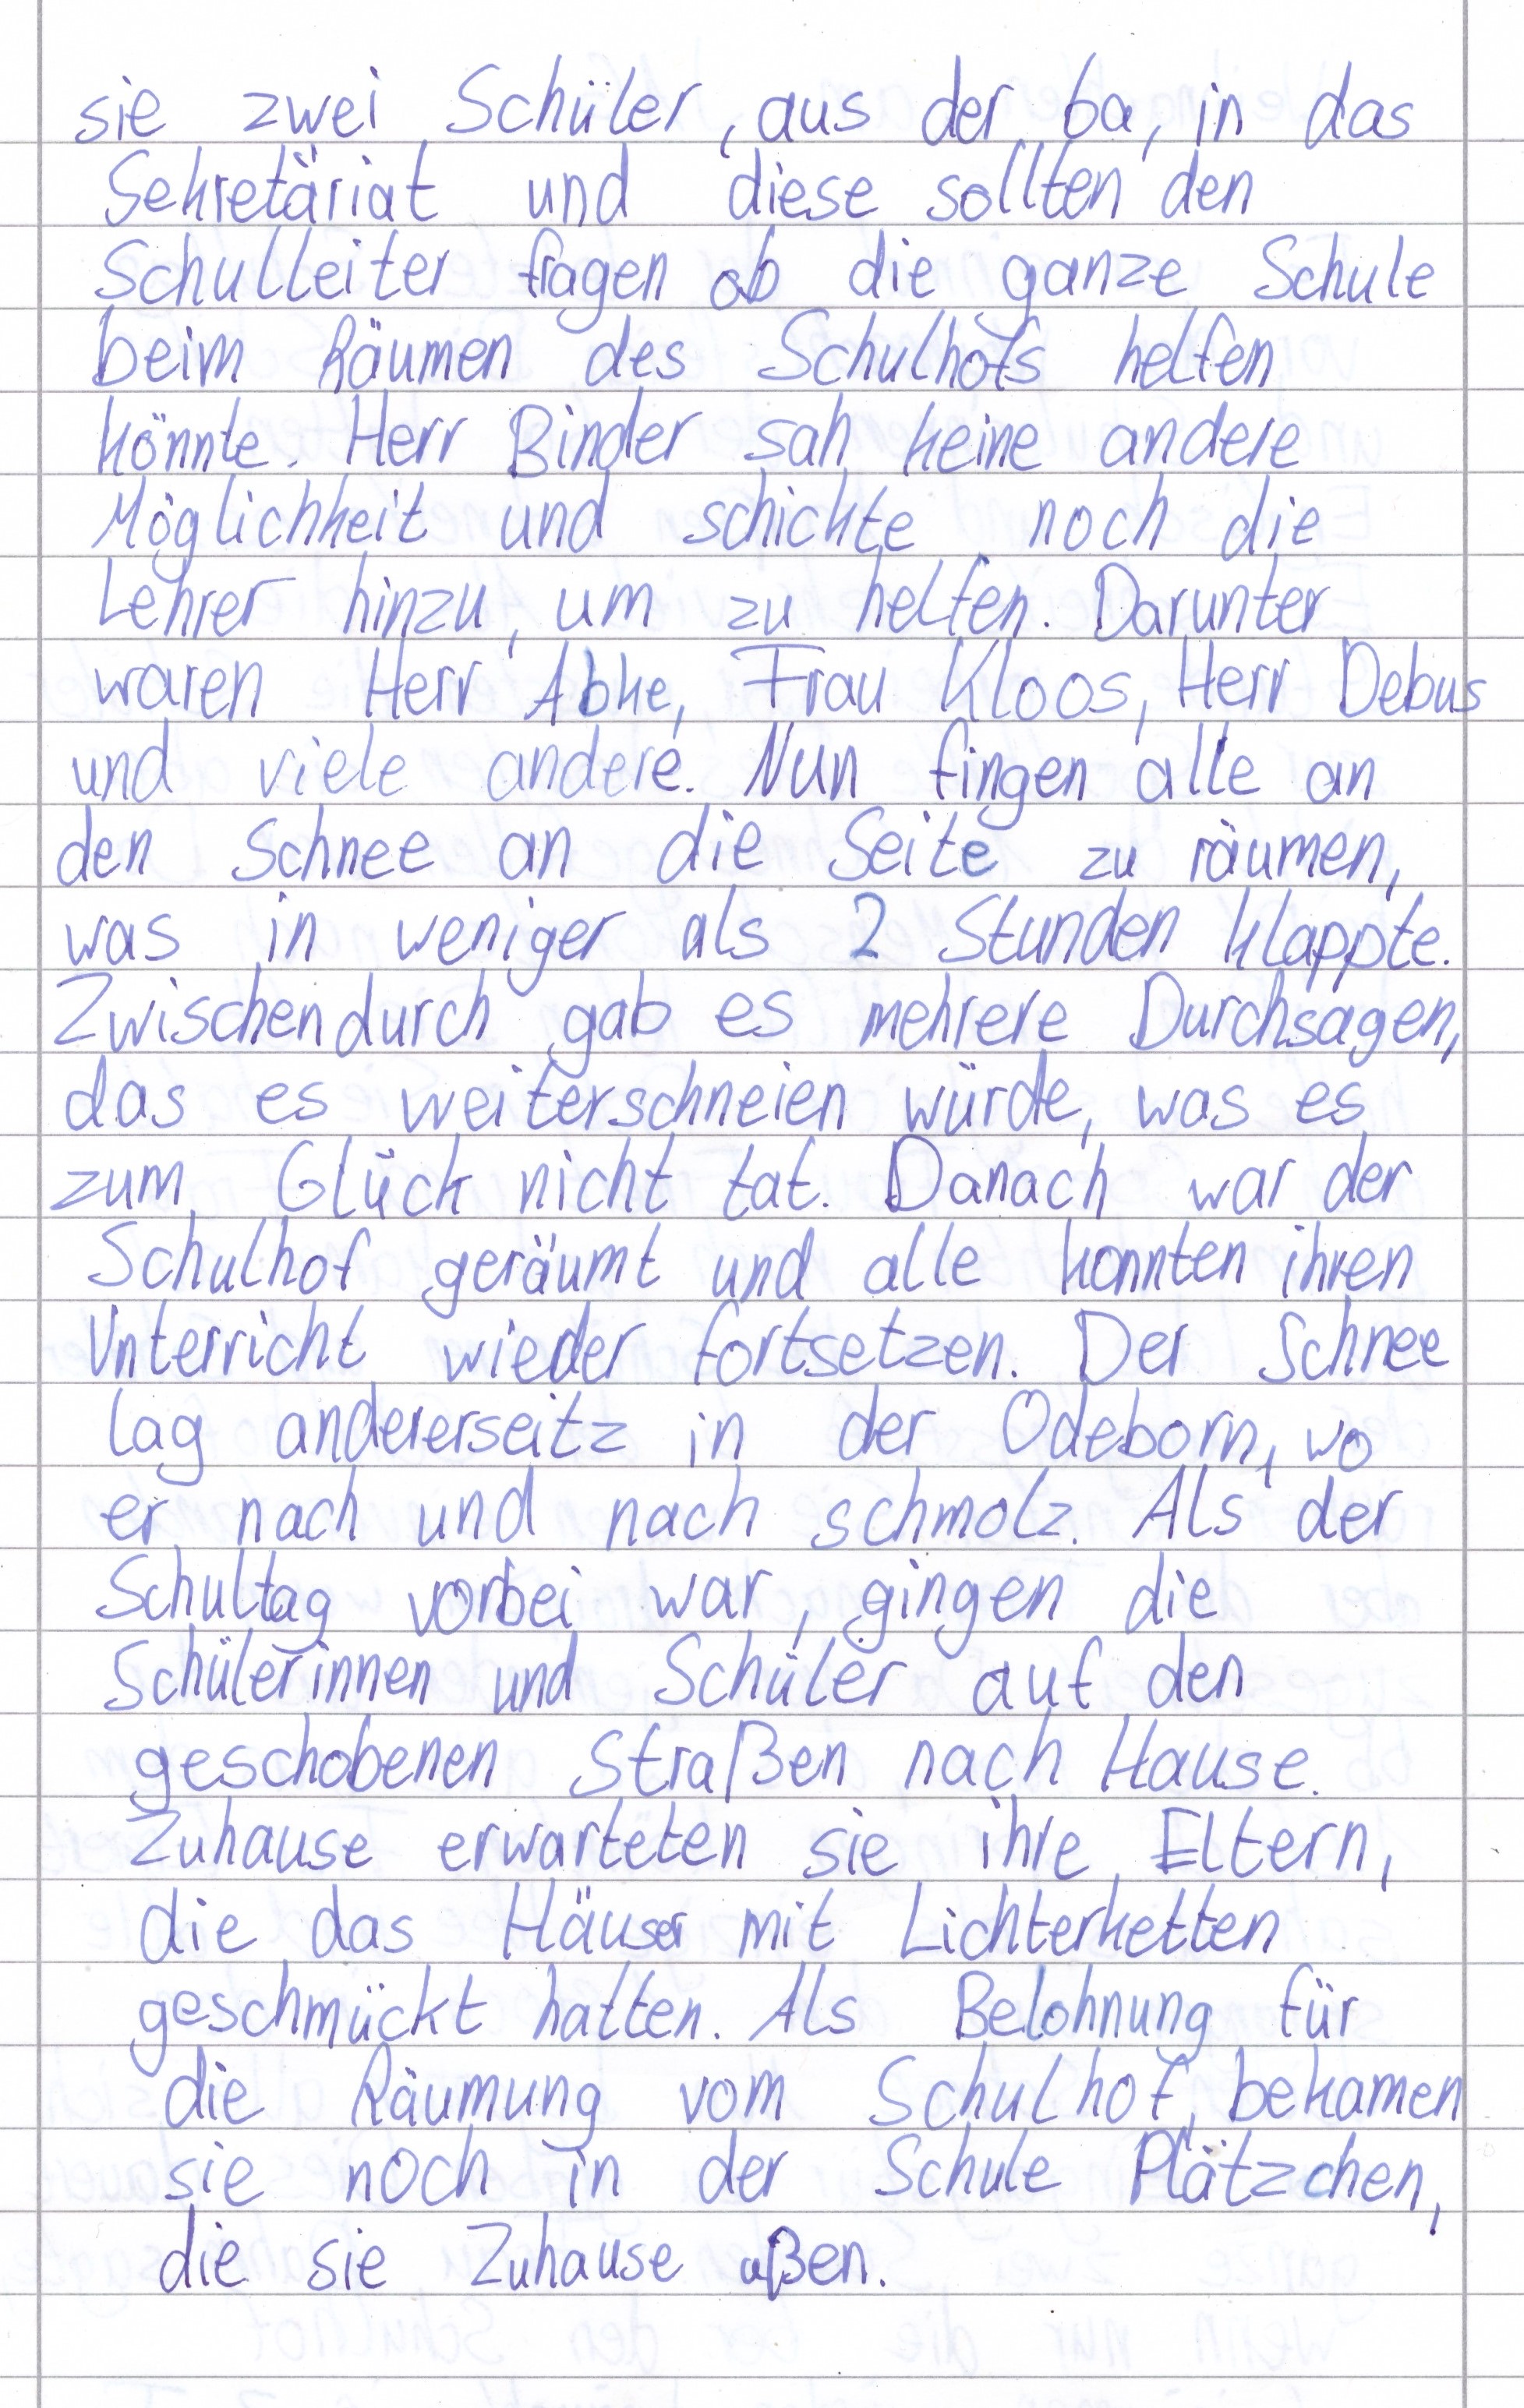 sie zwei Schüler, aus der 6a, in das
Sekretäriat und diese sollten den
Schulleiter fragen ob die ganze Schule
beim Räumen des Schulhofs helfen
könnte. Herr Binder sah keine andere
Möglichkeit und schickte noch die
Lehrer hinzu, um zu helfen. Darunter
waren Herr Abke, Frau Kloos, Herr Debus
und viele andere. Nun fingen alle an
den Schnee an die Seite zu räumen,
was in weniger als 2 Stunden klappte.
Zwischendurch gab es mehrere Durchsagen,
das es weiterschneien würde, was es
zum Glück nicht tat. Danach war der
Schulhof geräumt und alle konnten ihren
Unterricht wieder fortsetzen. Der Schnee
lag andererseitz in der Odeborn, wo
er nach und nach schmolz. Als der
Schultag vorbei war, gingen die
Schülerinnen und Schüler auf den
geschobenen Straßen nach Hause.
Zuhause erwarteten sie ihre Eltern,
die das Häuser mit Lichterketten
geschmückt hatten. Als Belohnung für
die Räumung vom Schulhof, bekamen
sie noch in der Schule Plätzchen,
die sie Zuhause aßen.